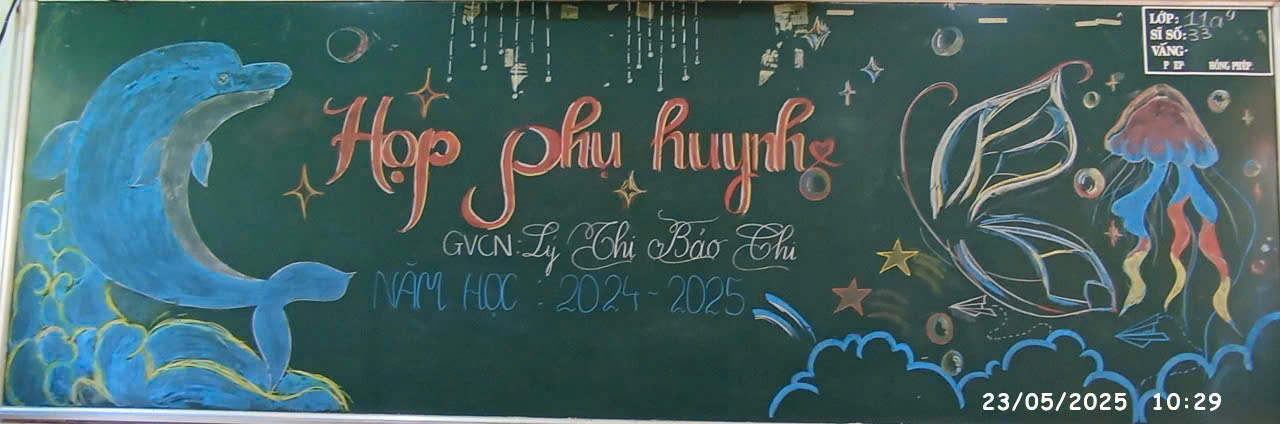 LỚP: 11a9
SĨ SỐ: 33
VẮNG:
P ÉP HÔNG PHÉP
Họp phụ huynh
GVCN: Lý Thị Bảo Thi
NĂM HỌC : 2024 - 2025
23/05/2025 10:29